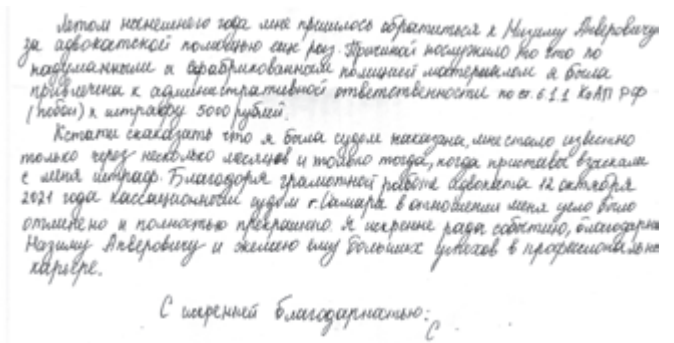 Летом нынешнего года мне пришлось обратиться к Назиму Анверовичу
за адвокатской помощью еще раз. Причиной послужило то что по
надуманными и сфабрикованным полицией материалом я была
привлечена к административной ответственности по ст. 6.1.1 КоАП РФ
(побои) к штрафу 5000 рублей.
Кстати скаказать что я была судом наказана, мне стало известно
только через несколько месяцев и только тогда, когда приставы взыскали
с меня штраф. Благодоря грамотной работе адвоката 12 октября
2021 года кассационным судом г. Самара в отношении меня дело было
отменено и полностью прекращено. Я искренне рада событию, благодарна
Назиму Анверовичу и желаю ему больших успехов в профессиональн
карьере.
С искренней благодарностью:
С